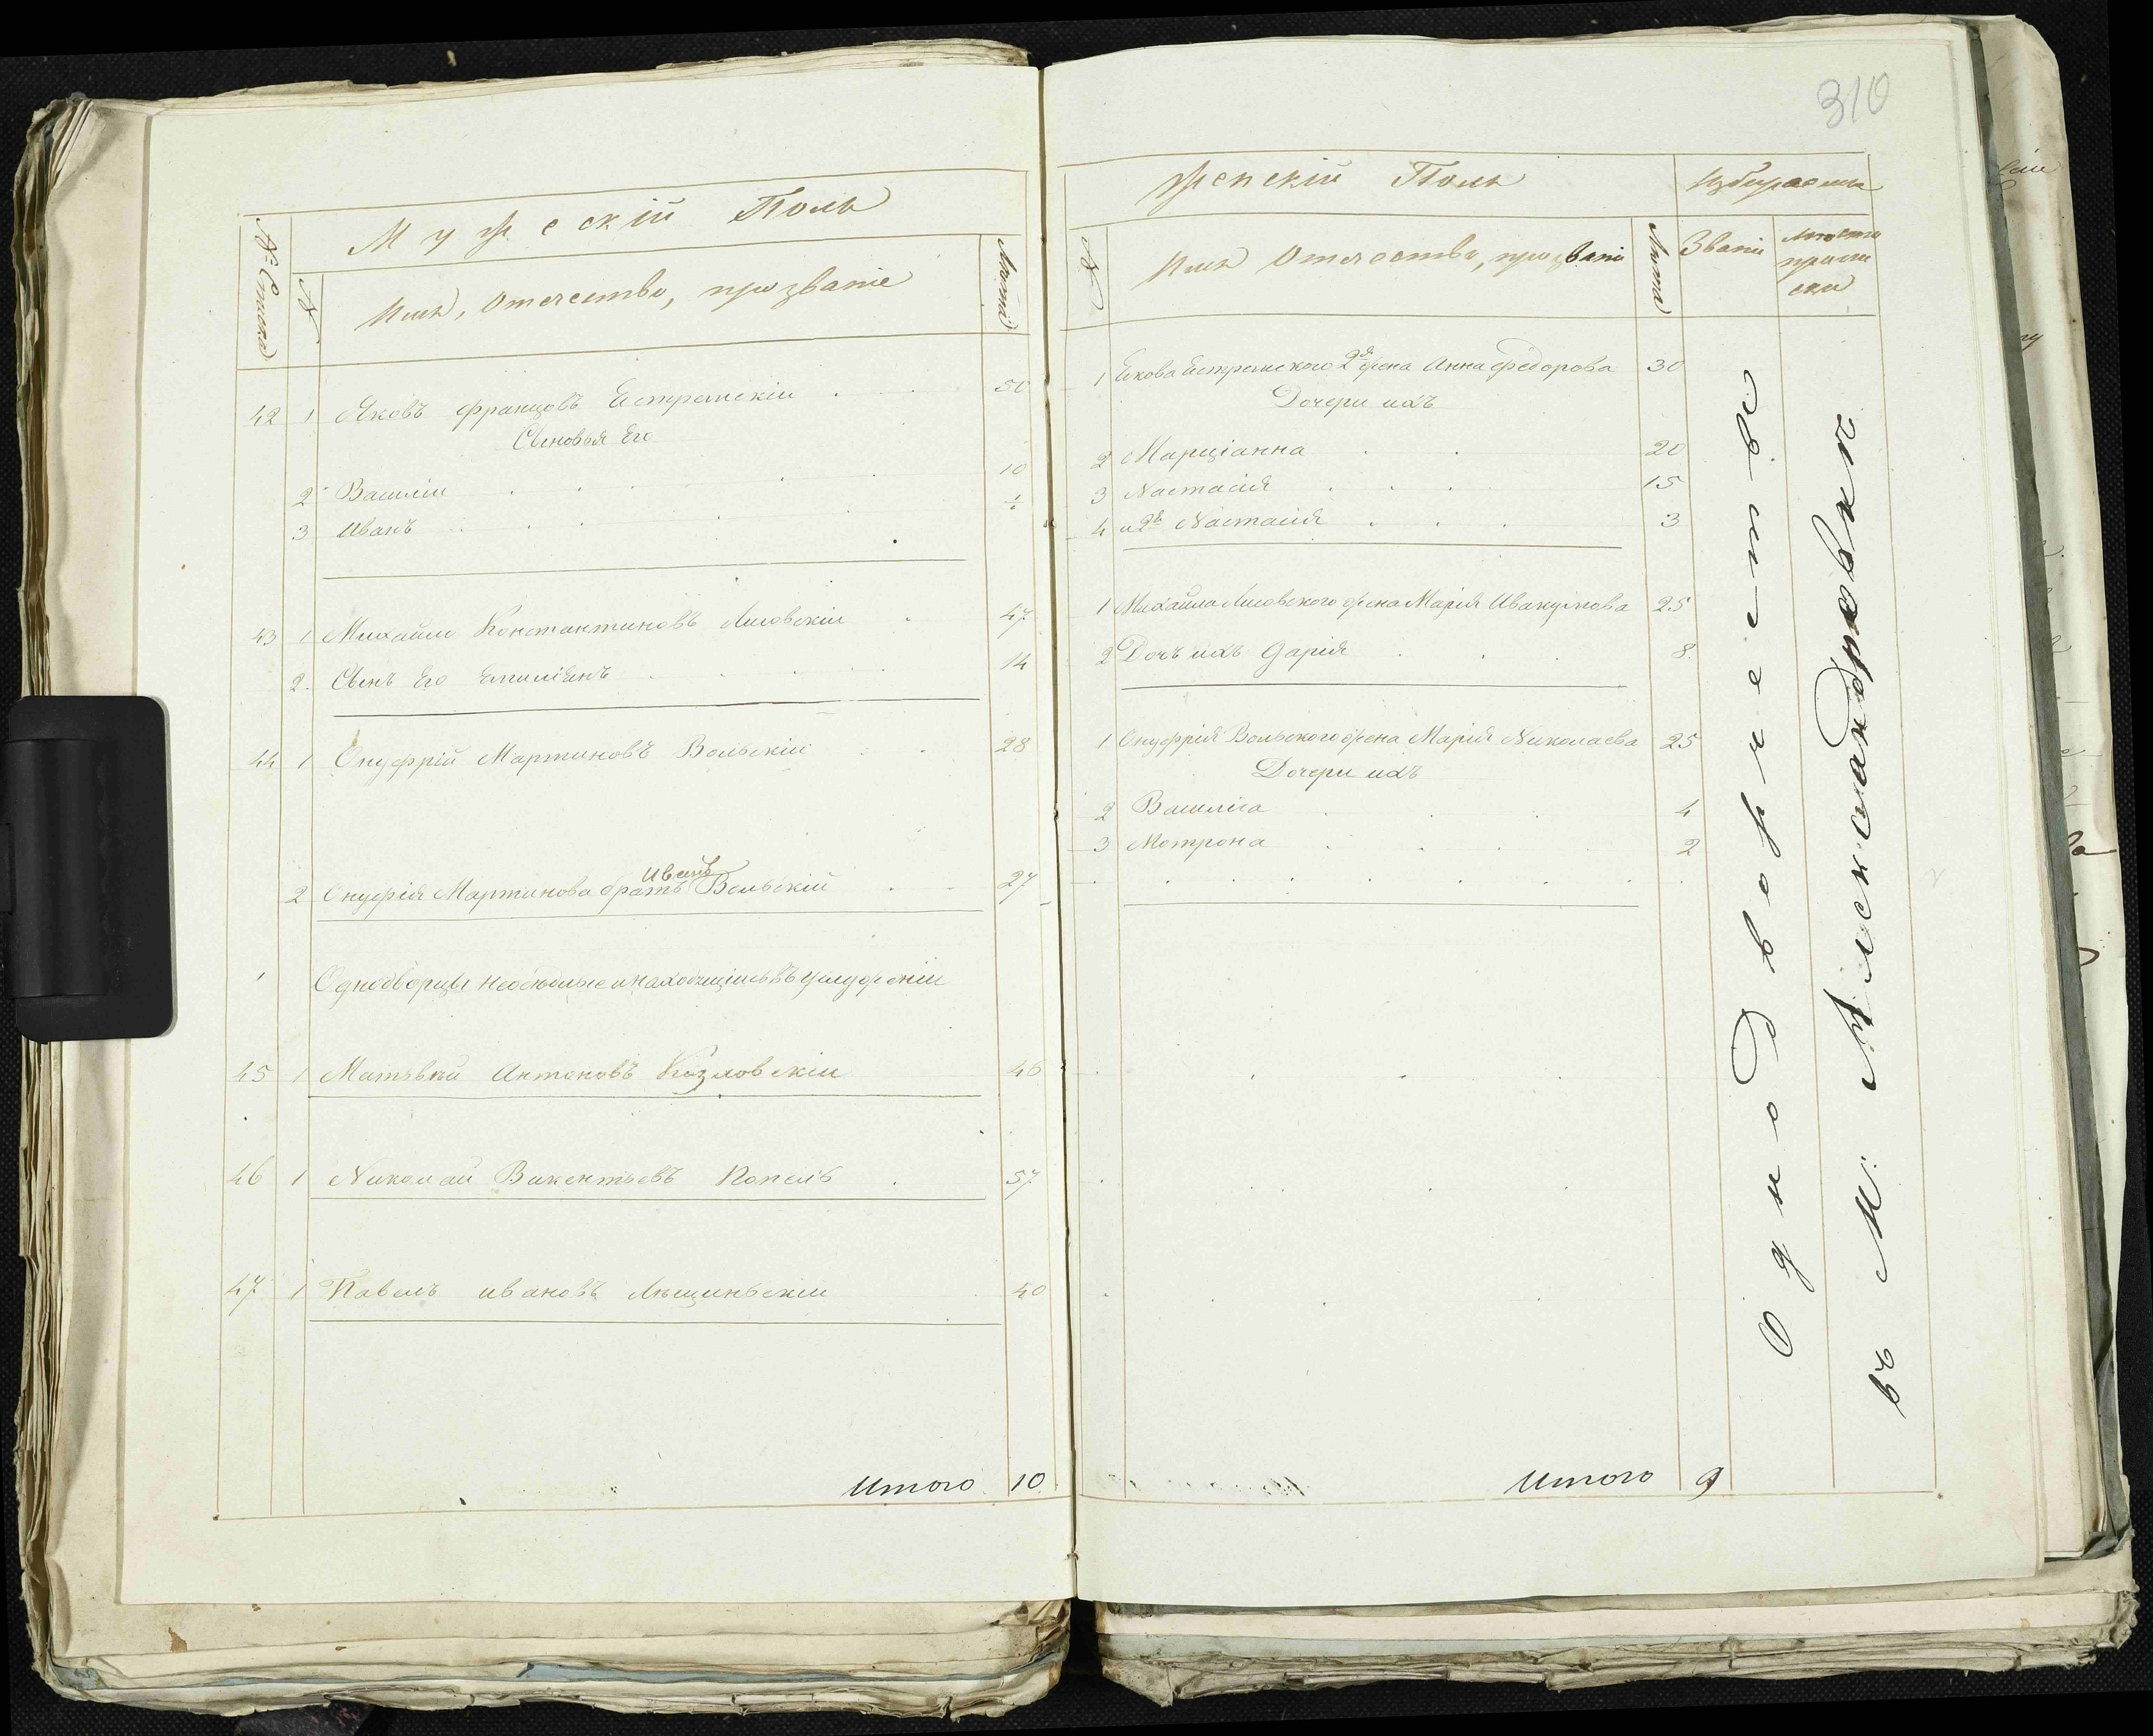 310
Мужескій Полъ
№ Списка
№
Имя, Отечество, прозваніе
Люта
42 1 Яковъ Францовъ Естремскій 50
Сыновья Его
2 Василій 10
3 Иванъ ½
43 1 Михайло Константиновъ Лисовскій 47
2. Сынъ Его Емиліянъ 14
44 1 Онуфрій Мартиновъ Вольскій 28
Иванъ
2 Онуфрія Мартинова братъ Вольскій 27
1 Однодворцы неосѣдлые и находящіись въ услуженіи
45 1 Матвѣй Антоновъ Козловскій 46
46 1 Николай Викентьевъ Копель 57
47 1 Павелъ ивановъ Лѣщинскій 40
Итого 10
Женскій Полъ
Избираемы
№
Имя Отечество, прозвані
Люта
Звані
Мѣсто
припи
ски
1 Якова Естремского 2я жена Анна Федорова 30
Дочери ихъ
2 Марціанна 20
3 Настасія 15
4 и 2я Настасія 3
1 Михайла Лисовского жена Марія Ивакумова 25
2 Дочь ихъ Дарія 8.
1 Онуфрія Вольского жена Марія Николаева 25
Дочери ихъ
2 Василіса 4
3 Мотрона 2
Итого 9
Однодворчество
въ М. Александровки